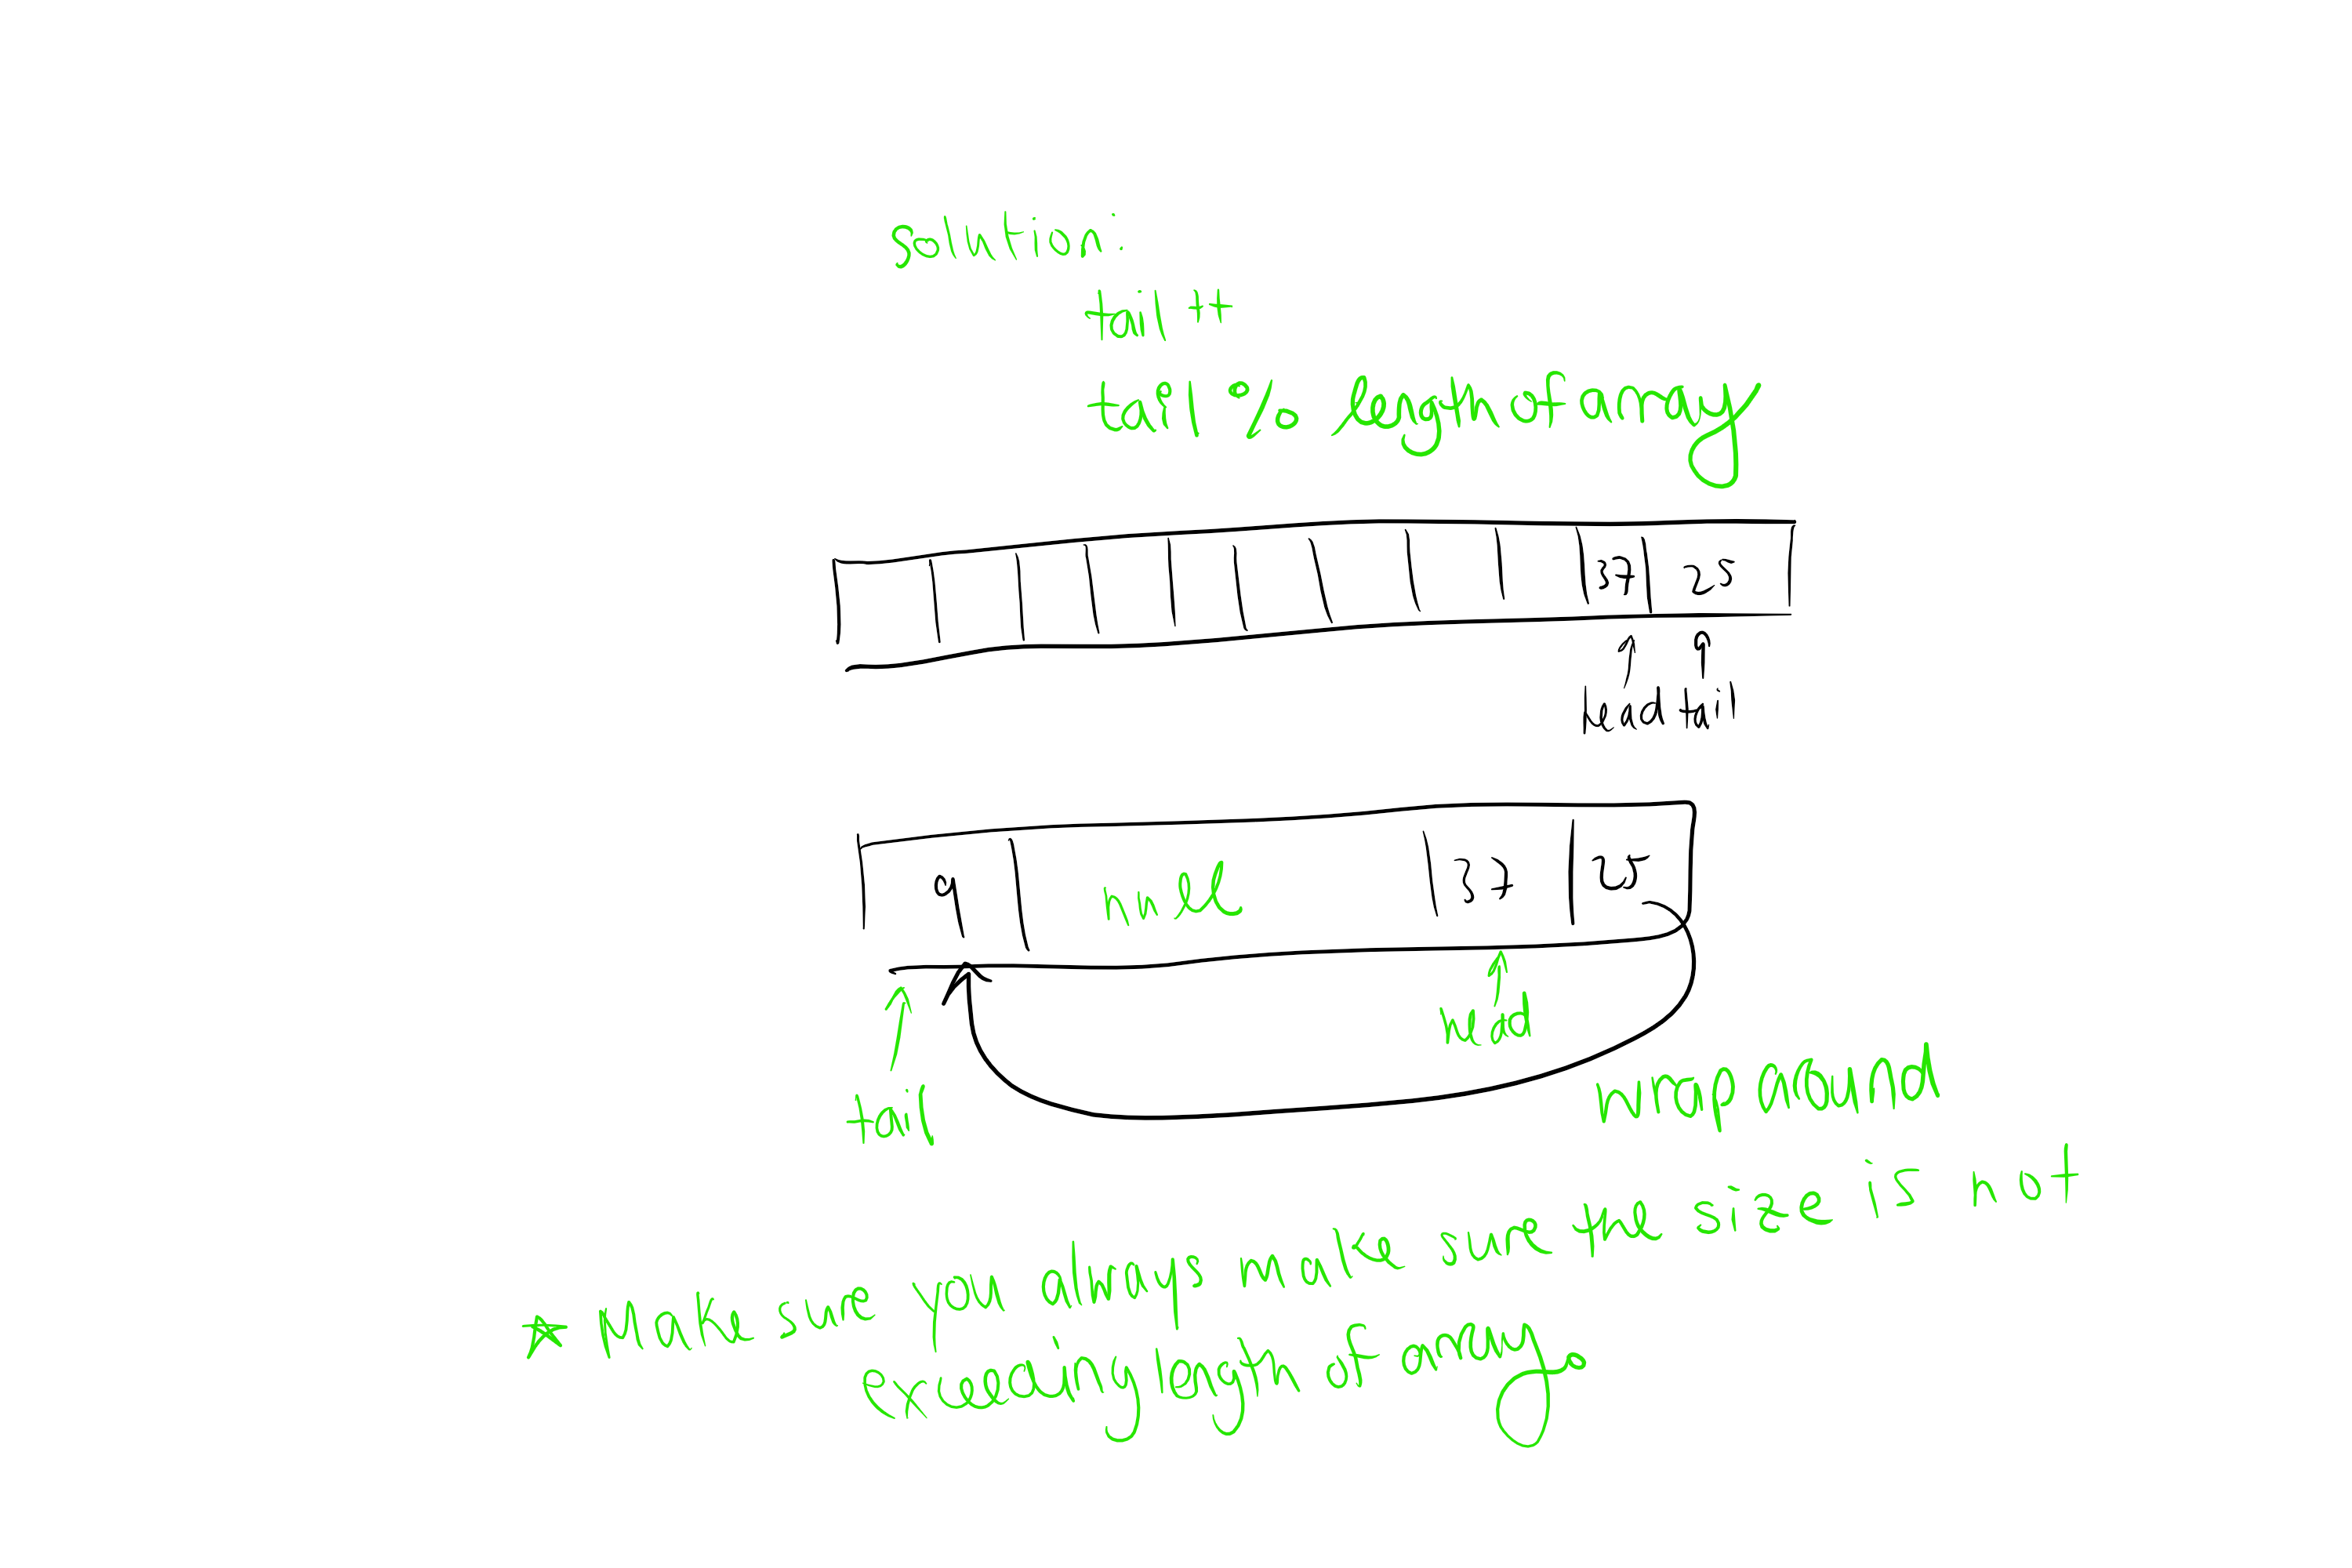 solution:
tail ++
tail % legth of array
37 25
head tail
9 null 37 25
head
tail
wrap around
☆ Make sure you always make sure the size is not
exceeding legth of array.